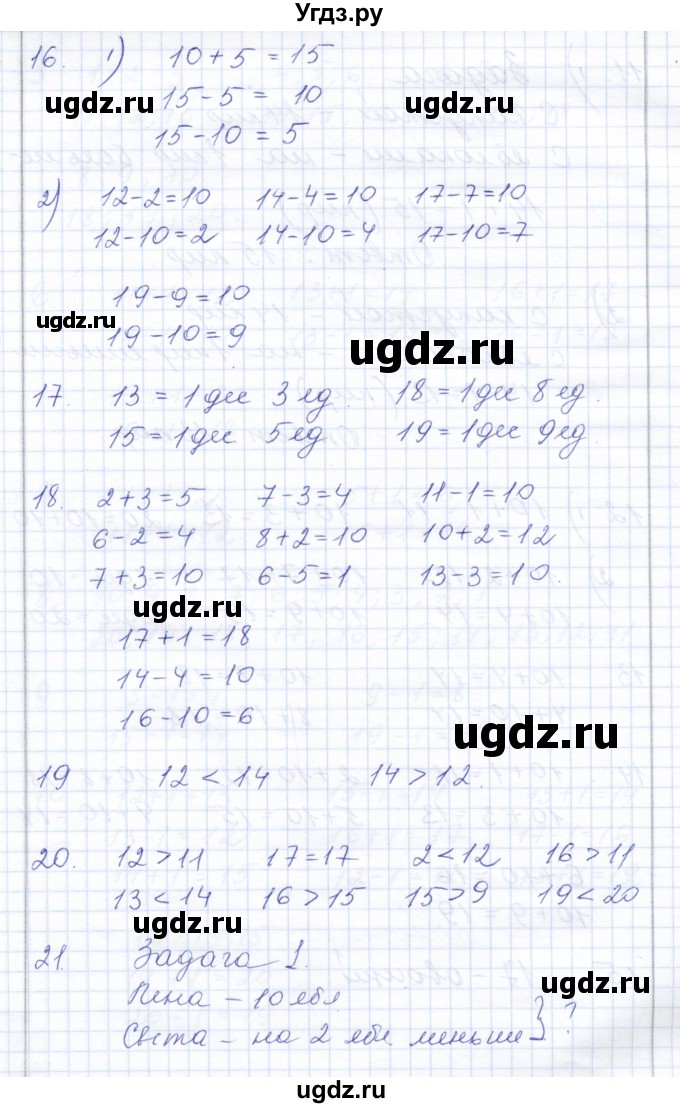 Угдз.ру
16. 1) 10 + 5 = 15
15 - 5 = 10
ugdz.ru ugdz.ru
15 - 10 = 5
2) 12 - 2 = 10 14 - 4 = 10 17 - 7 = 10
12 - 10 = 2 14 - 10 = 4 17 - 10 = 7
19 - 9 = 10
ugdz.ru
19 - 10 = 9
ugdz.ru
17. 13 = 1 дес 3 ед. 18 = 1 дес 8 ед.
15 = 1 дес 5 ед 19 = 1 дес 9 ед.
18. 2 + 3 = 5 7 - 3 = 4 11 - 1 = 10
6 - 2 = 4 8 + 2 = 10 10 + 2 = 12
7 + 3 = 10 6 - 5 = 1 13 - 3 = 10.
ugdz.ru
17 + 1 = 18
14 - 4 = 10
16 - 10 = 6
ugdz.ru
19 12 < 14 14 > 12.
20. 12 > 11 17 = 17 2 < 12 16 > 11
13 < 14 16 > 15 15 > 9 19 < 20
ugdz.ru
21. Задача 1.
ugdz.ru
Лена - 10 ябл.
Света - на 2 ябл. меньше } ?
ugdz.ru